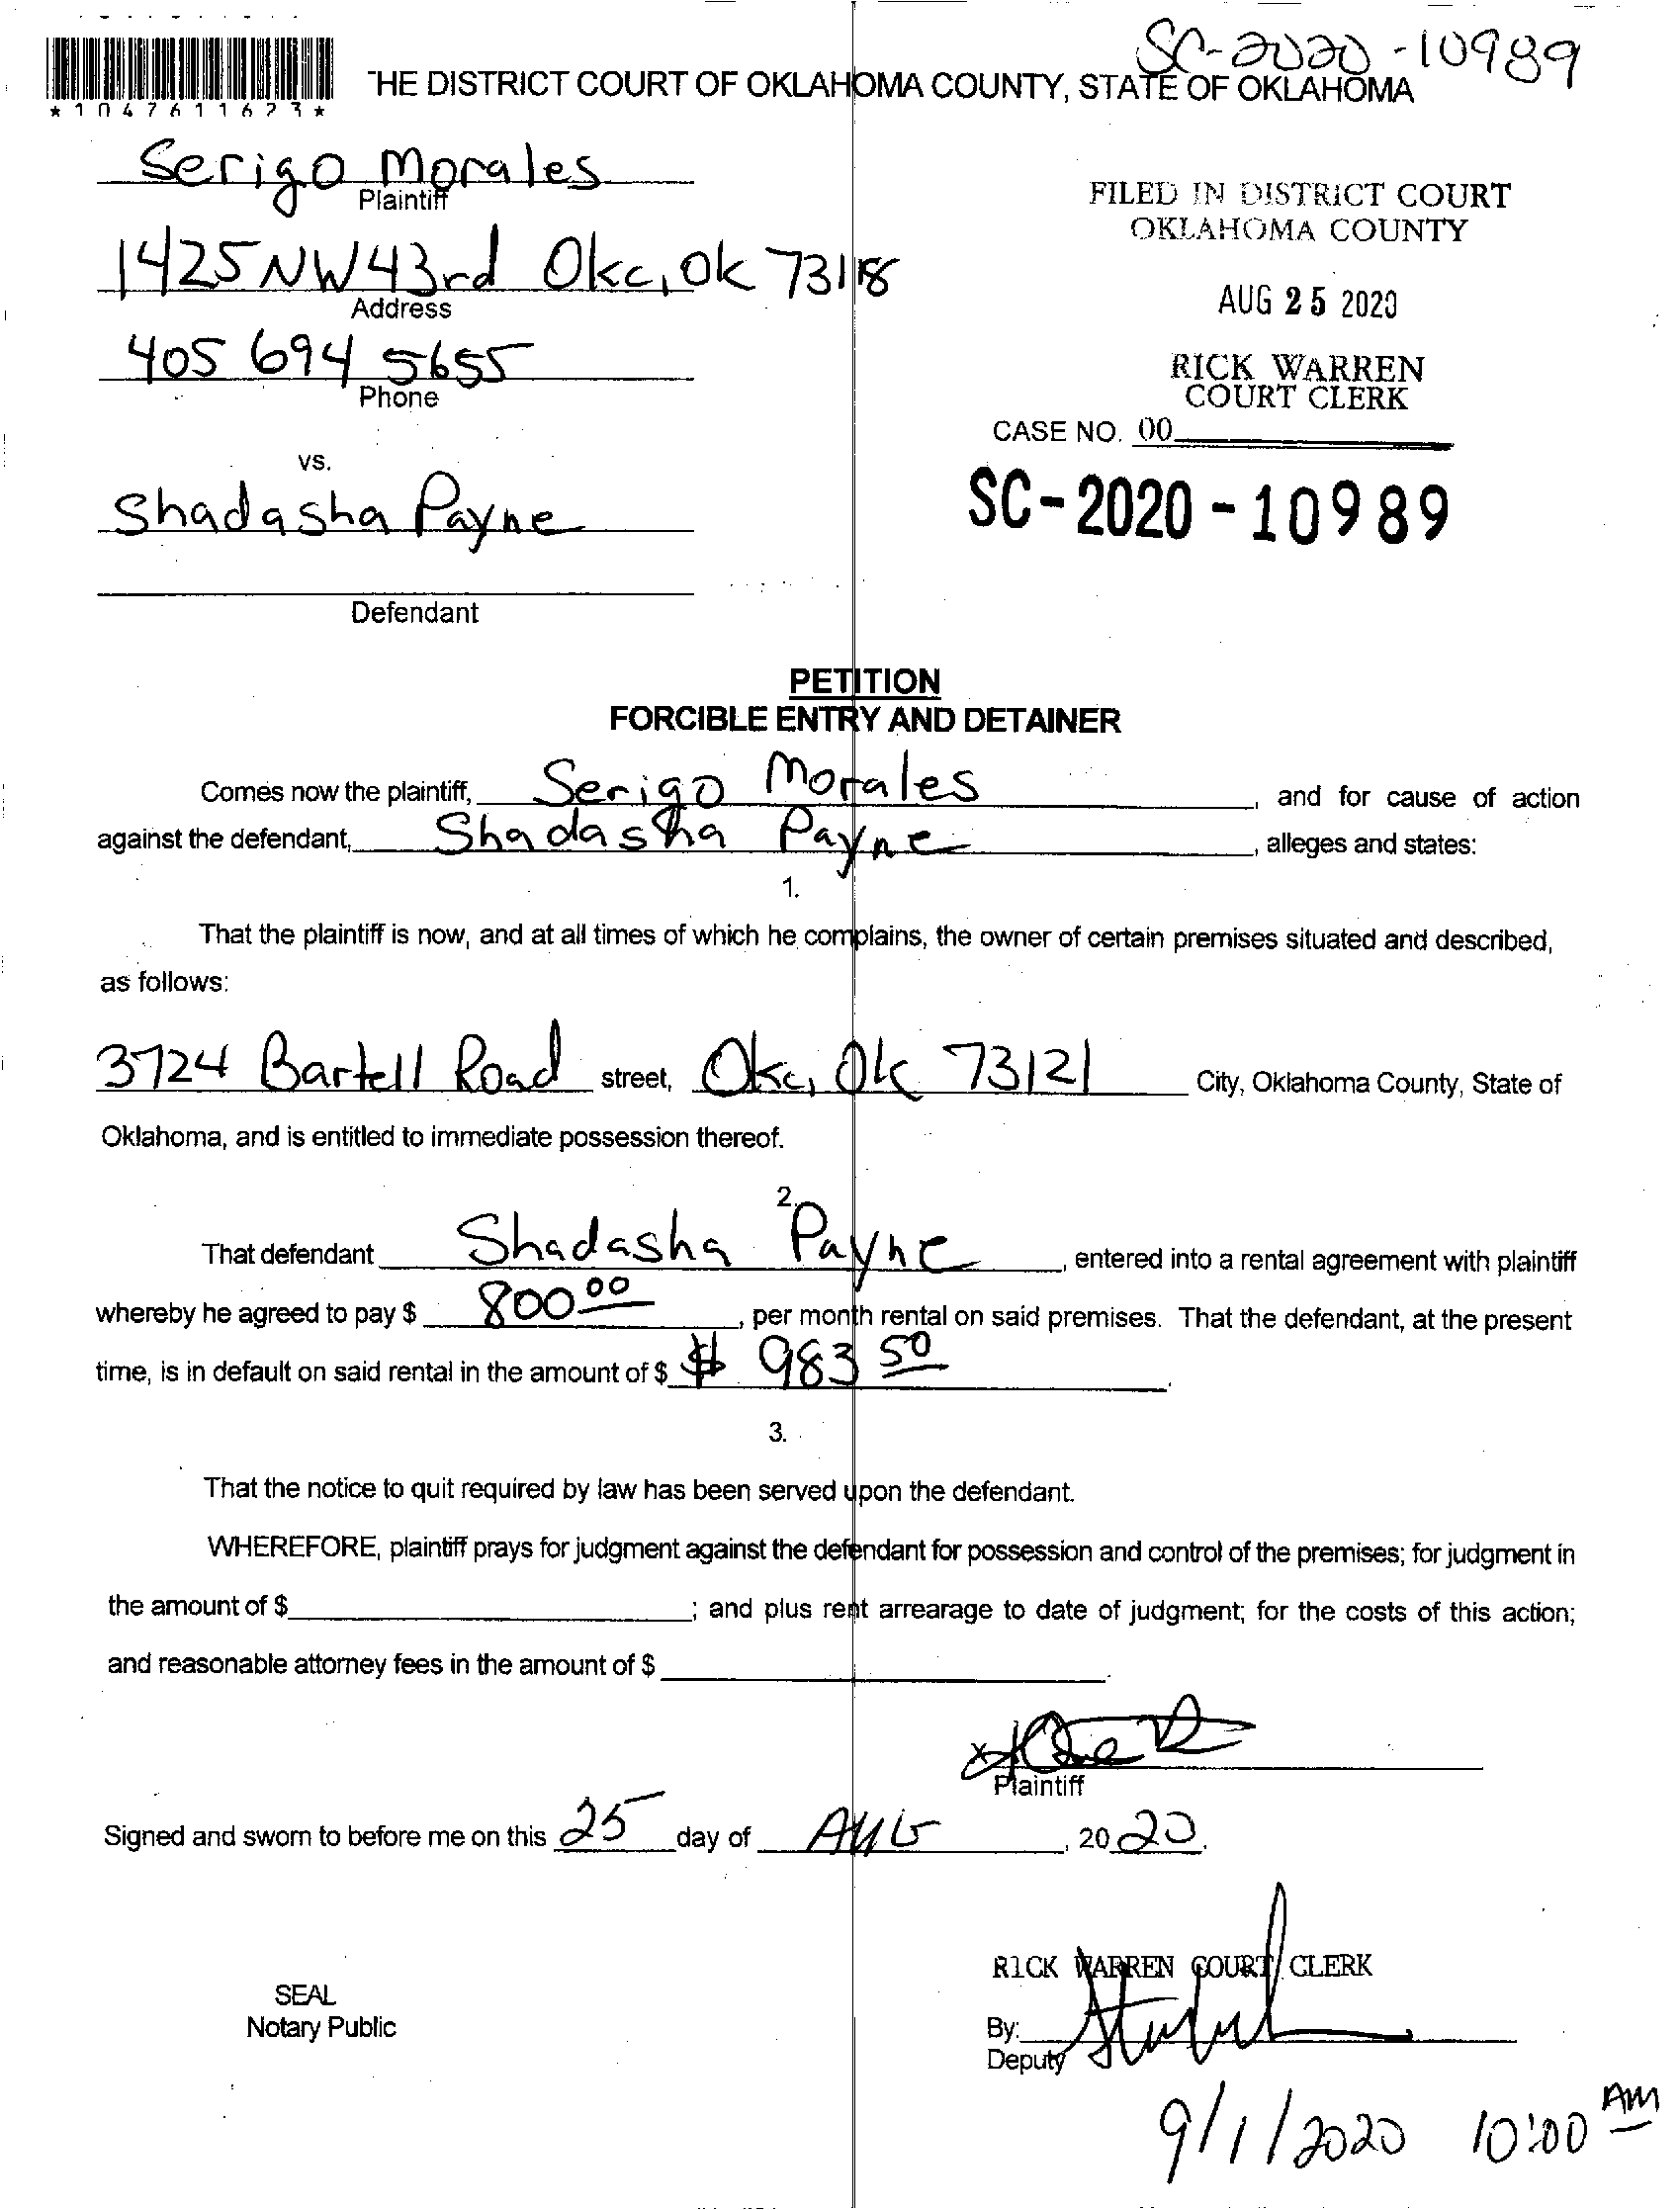 SC-2020-10989
THE DISTRICT COURT OF OKLAHOMA COUNTY, STATE OF OKLAHOMA
*1047611623*
Serigo Morales
Plaintiff
FILED IN DISTRICT COURT
OKLAHOMA COUNTY
1425 NW 43rd Okc, Ok 73118
Address
AUG 25 2020
405 694 5655
Phone
RICK WARREN
COURT CLERK
CASE NO. 00
vs.
SC-2020-10989
Shadasha Payne
Defendant
PETITION
FORCIBLE ENTRY AND DETAINER
Comes now the plaintiff, Serigo Morales, and for cause of action
against the defendant, Shadasha Payne, alleges and states:
1.
That the plaintiff is now, and at all times of which he complains, the owner of certain premises situated and described,
as follows:
3724 Bartell Road street, Okc, Ok 73121 City, Oklahoma County, State of
Oklahoma, and is entitled to immediate possession thereof.
2.
That defendant Shadasha Payne, entered into a rental agreement with plaintiff
whereby he agreed to pay $ 800.00, per month rental on said premises. That the defendant, at the present
time, is in default on said rental in the amount of $ $ 983 50.
3.
That the notice to quit required by law has been served upon the defendant.
WHEREFORE, plaintiff prays for judgment against the defendant for possession and control of the premises; for judgment in
the amount of $ ; and plus rent arrearage to date of judgment; for the costs of this action;
and reasonable attorney fees in the amount of $ .
x
Plaintiff
Signed and sworn to before me on this 25 day of AUG, 2020.
RICK WARREN COURT CLERK
SEAL
Notary Public
By:
Deputy
9/1/2020 10:00 AM